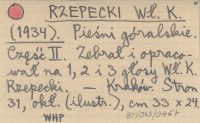 RZEPECKI Wł. K.
(1934). Pieśni góralskie.
Część II. Zebrał i opraco-
wał na 1, 2 i 3 głosy Wł. K.
Rzepecki. — Kraków. Stron
31, okł. (ilustr.), cm 33 x 24.
WHP